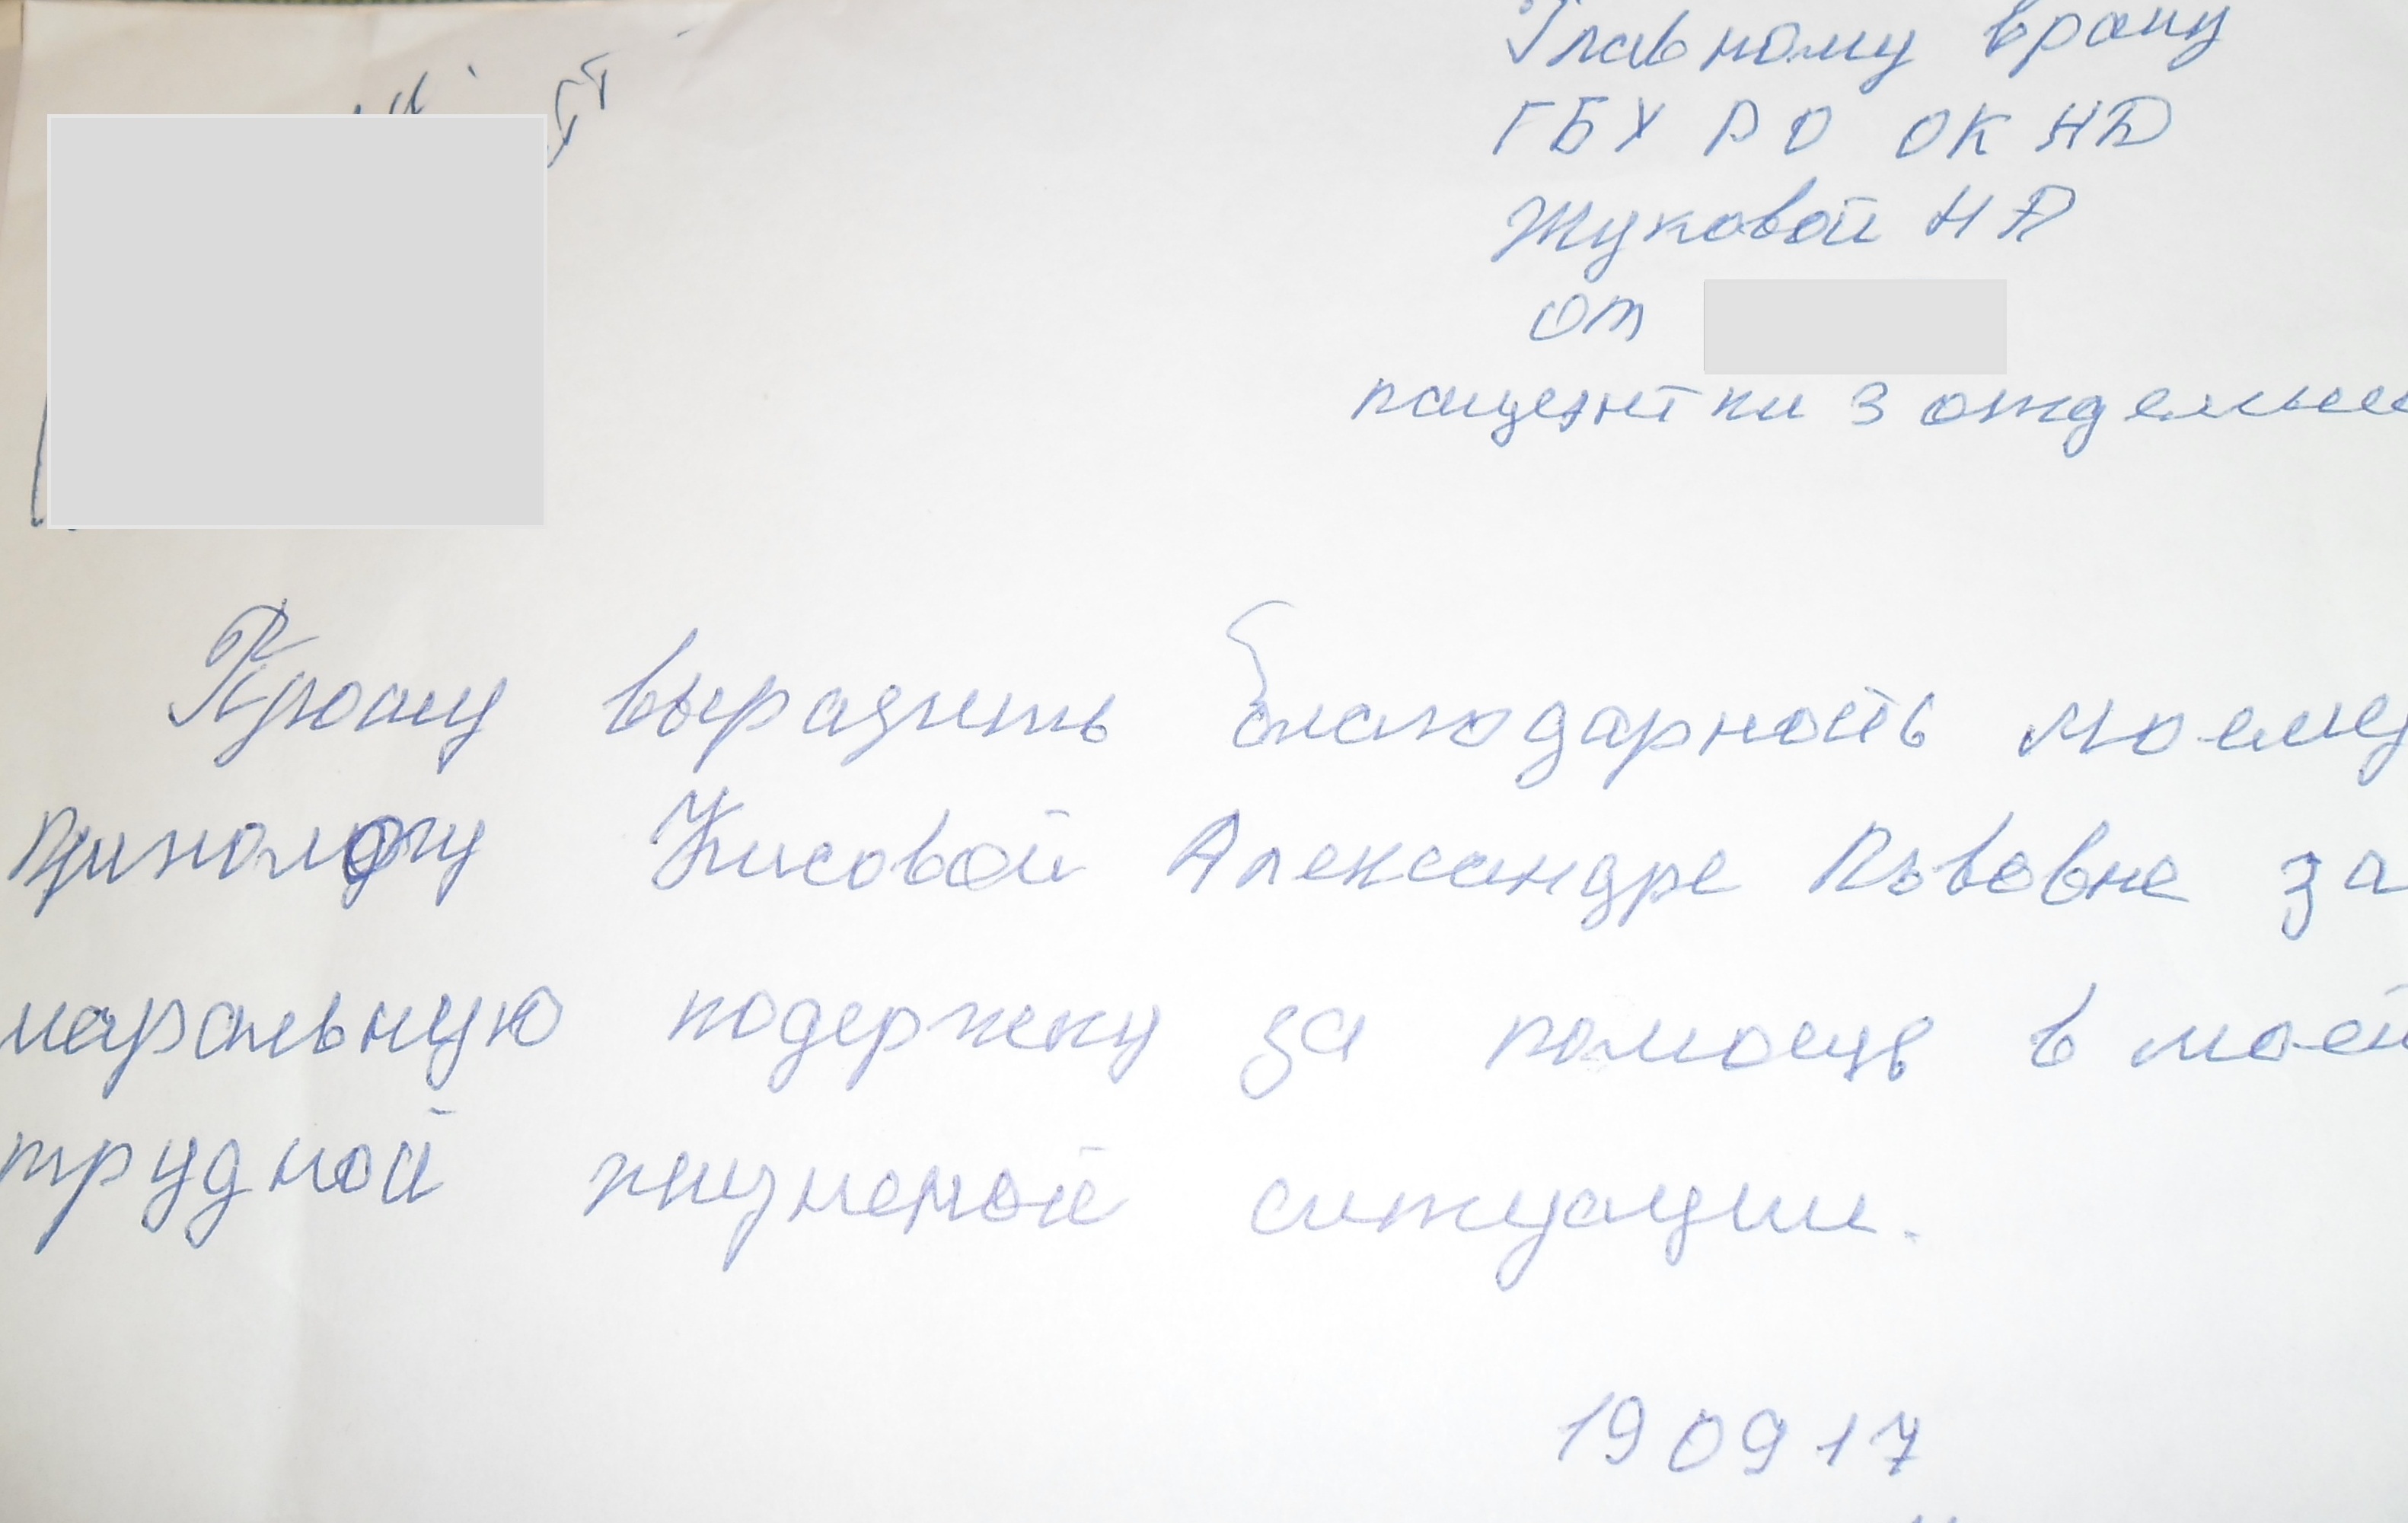 Главному врачу
ГБУ РО ОКНД
Жуковой Н А
от
пациентки 3 отделен
Прошу выразить благодарность моему
Александре Львовне за
маральную подержку за помощь в моей
трудной жизненой ситуации.
19 09 17